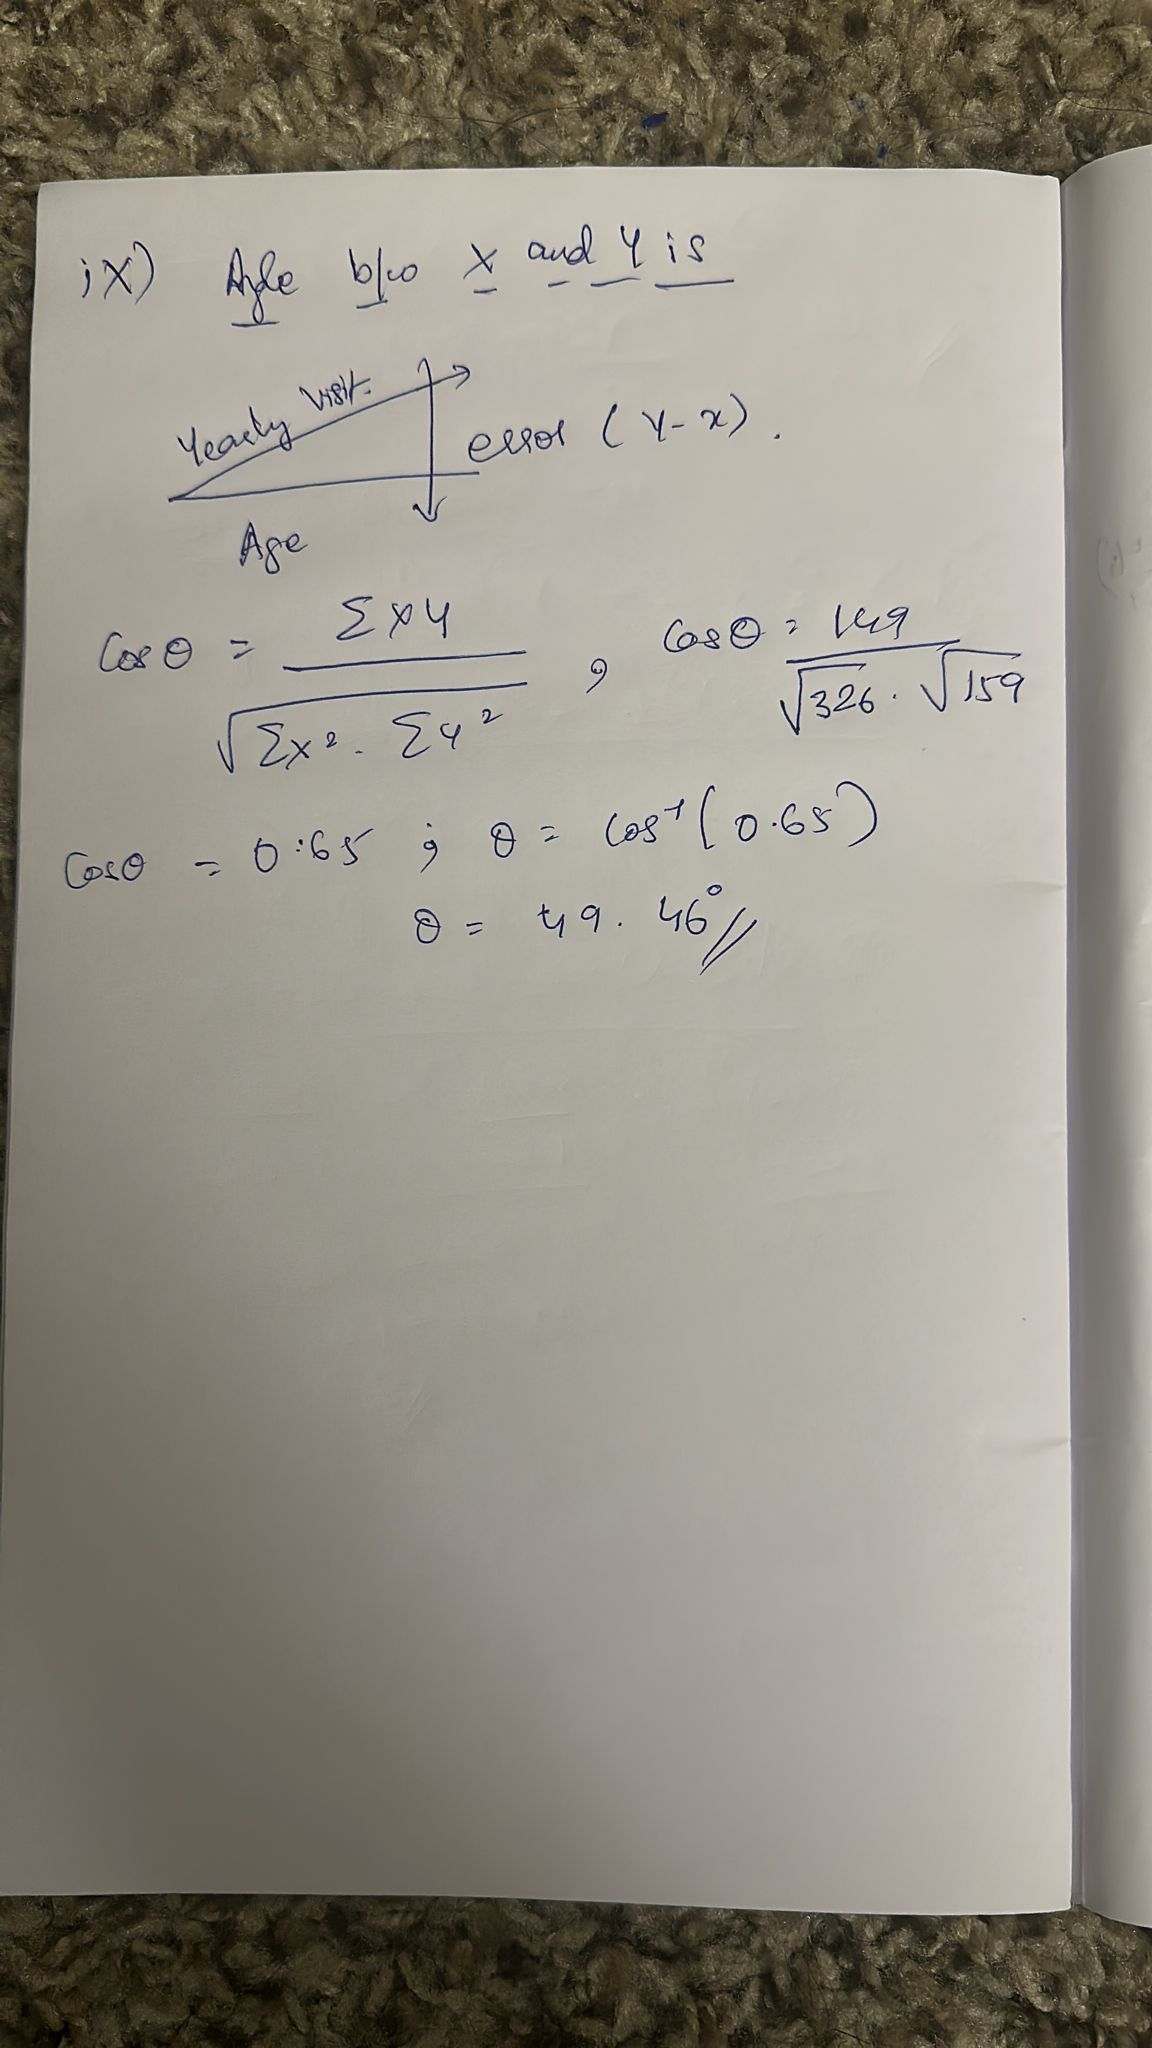 ix) Agle b/w x and y is
Yearly Visit
error (y-x).
Age
Cosθ = Σxy / √Σx². Σy² , Cosθ = 149 / √326 . √159
Cosθ = 0.65 ; θ = cos⁻¹(0.65)
θ = 49.46°//